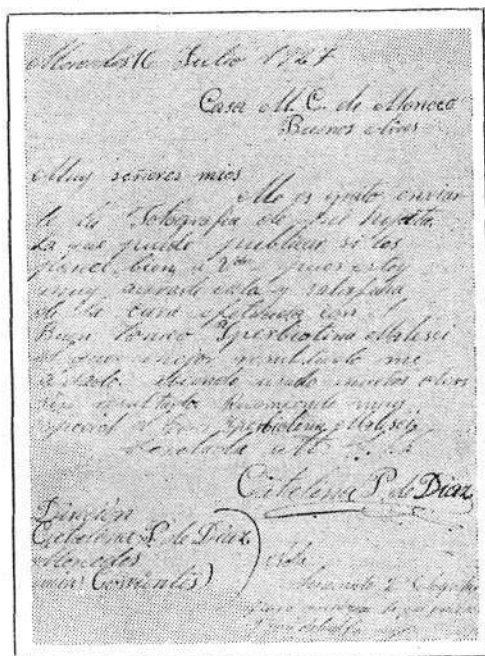 Mercedes 16 Julio 1927
Casa M. C. de Monaco
Buenos Aires
Muy señores mios
Me es grato enviar
le la Fotografia de mi hijita
la que puede publicar si les
parece bien a Vds pues estoy
muy y satisfecha
de la cura efetuada con el
Buen tonico Iperbiotina Malesci
el que mejor resultado me
a dado usado muchos otros
sin resultado
Iperbiotina Malesci
Catelina P. de Diaz
Direción
Catelina P. de Diaz
Mercedes
Corrientes)